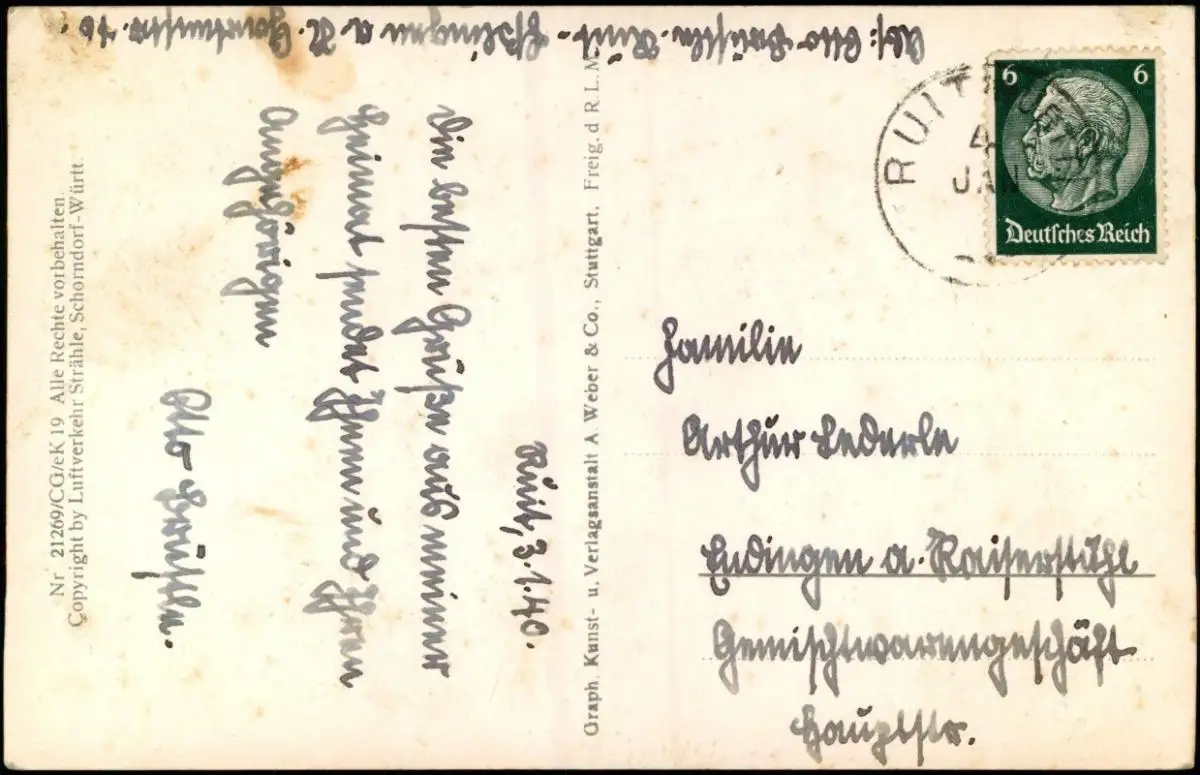 Abs: Otto Brüstle. Ruit- Eßlingen a. N. Gartenstr. 70.
Ruit, 3.1.40.
Die besten Grüße aus meiner
Heimat sendet Ihnen und Ihren
Angehörigen
Otto Brüstle.
Nr 21269/CG/eK 19 Alle Rechte vorbehalten.
Copyright by Luftverkehr Strähle, Schorndorf-Württ.
Graph. Kunst- u. Verlagsanstalt A. Weber & Co., Stuttgart. Freig. d R. L. M.
RUIT
4
JAN
6 6
Deutsches Reich
Familie
Arthur Lederle
Endingen a. Kaiserstuhl
Gemischtwarengeschäft
Hauptstr.